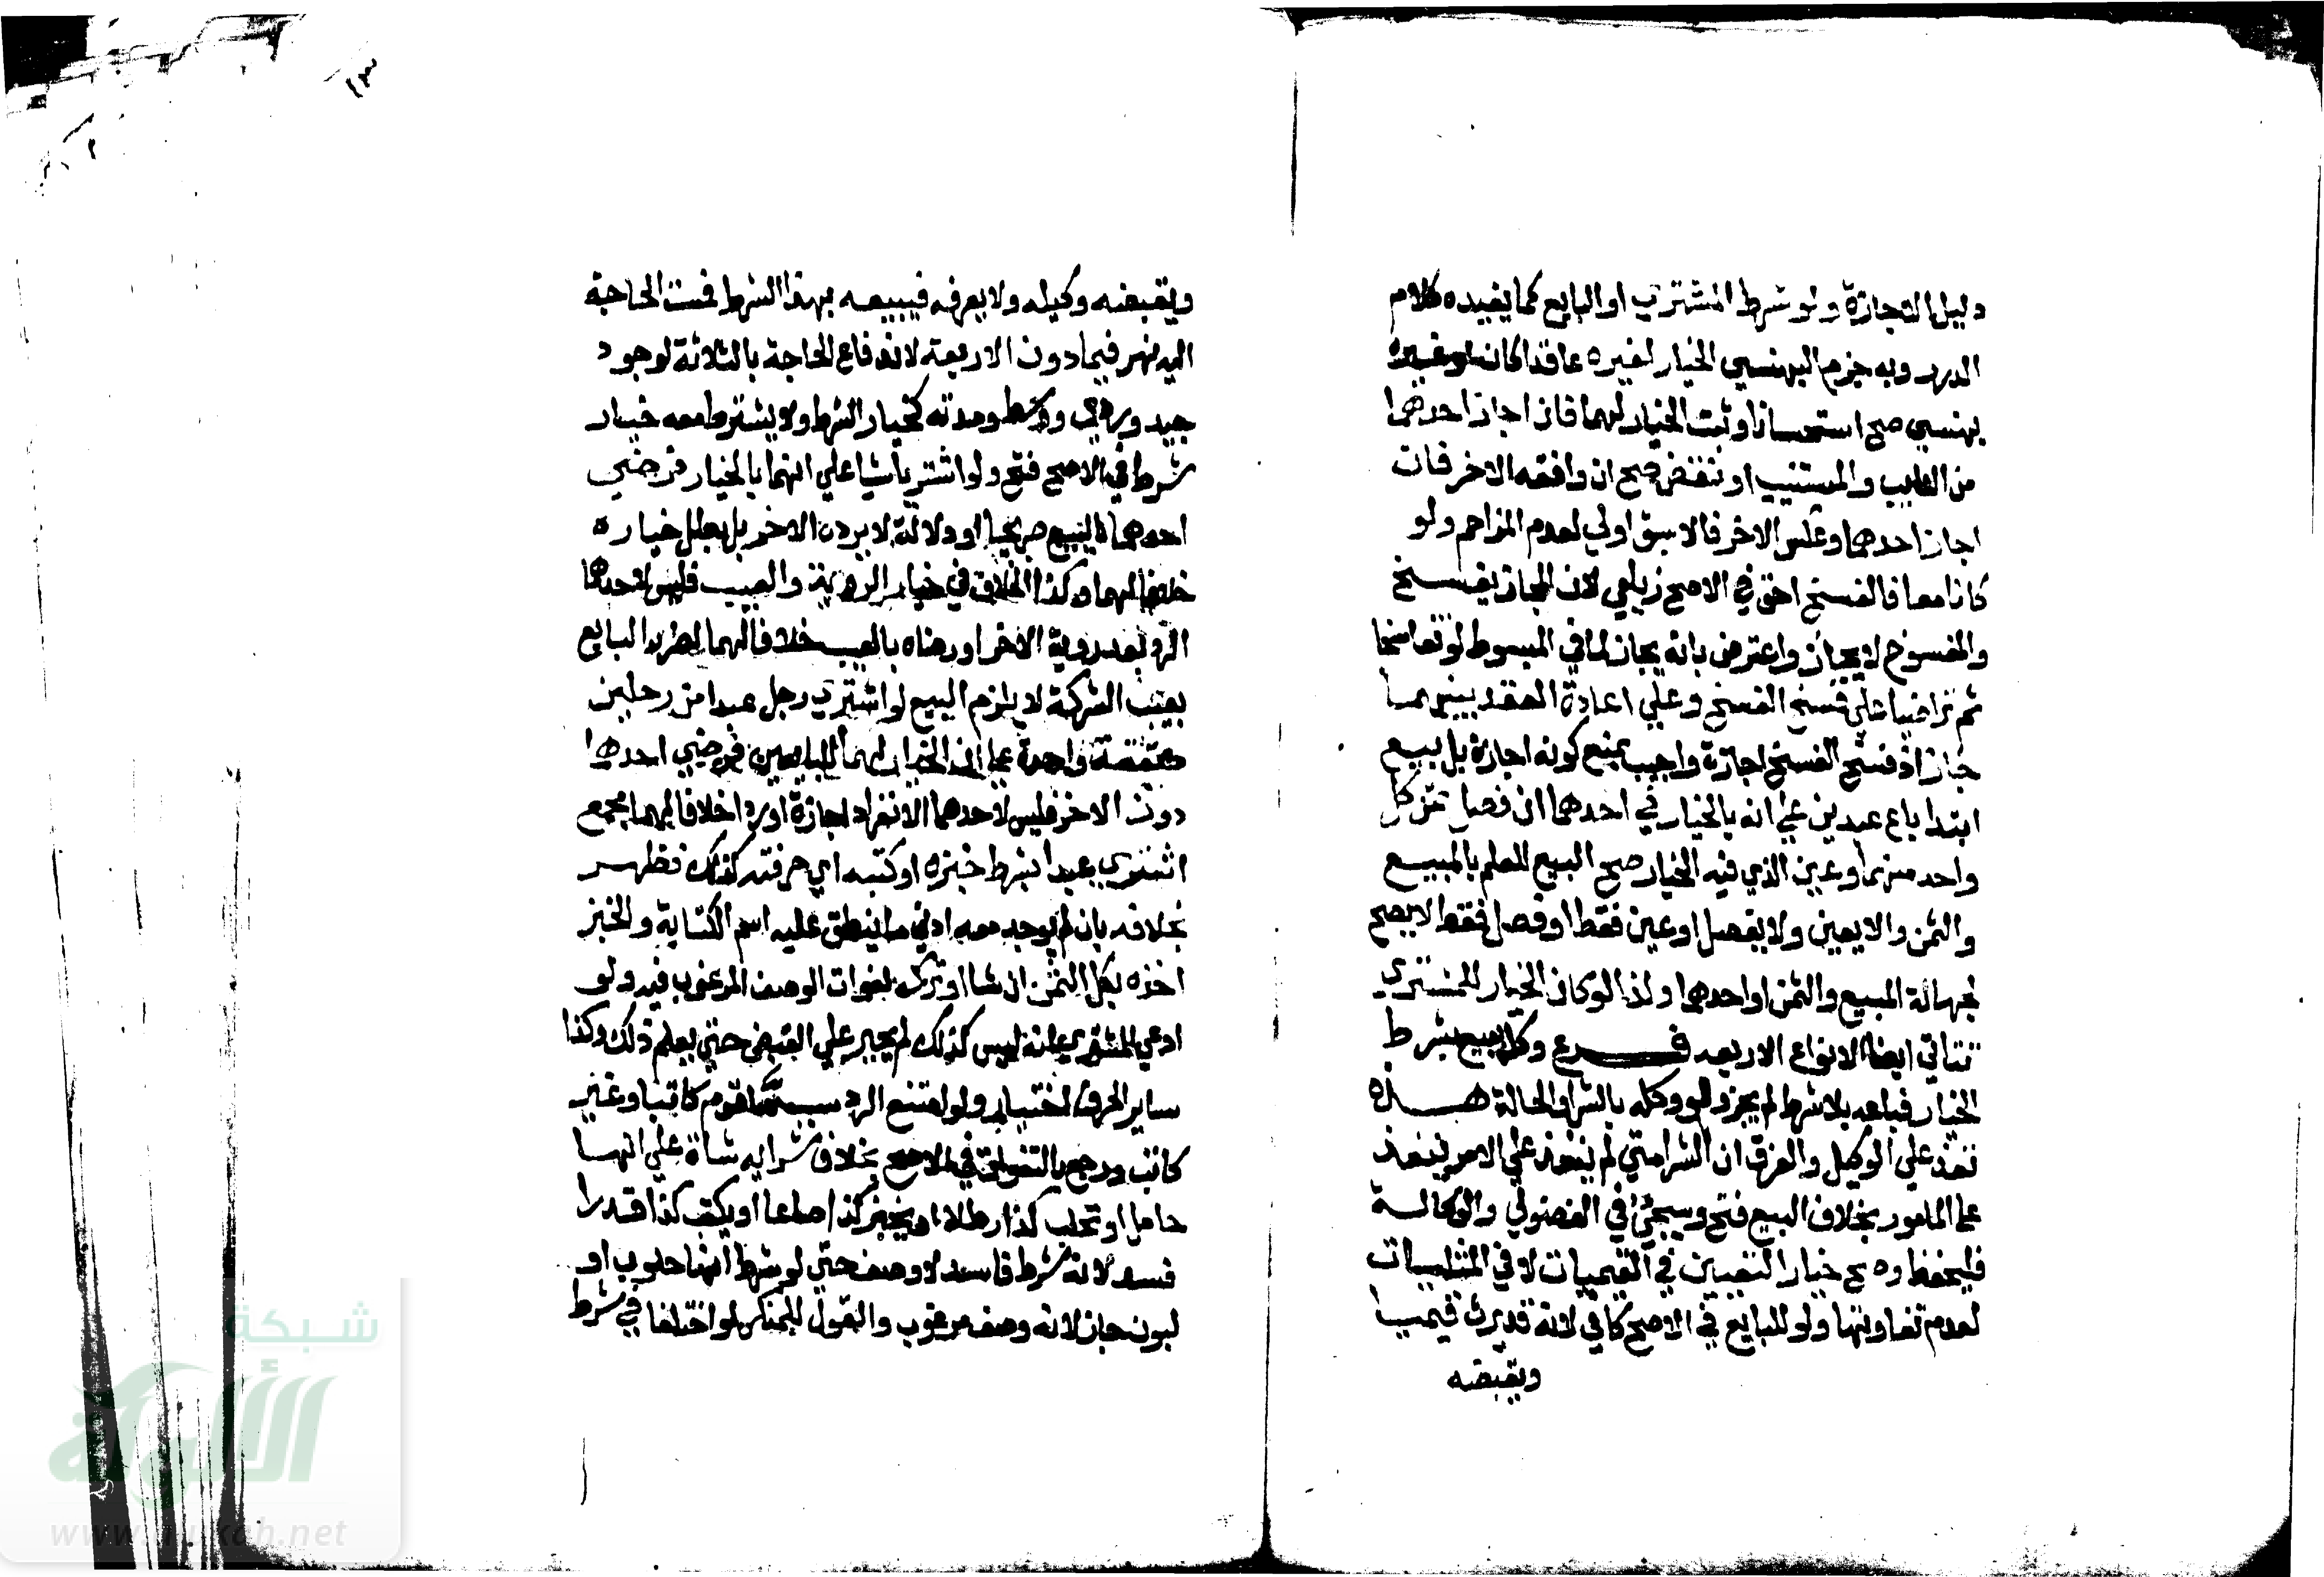 دليل الاجازة ولو شرط المشتري او البايع كما يفيده كلام
الدرر وبه جزم البهنسي الخيار لغيره عاقدا كان او غيره
بهنسي صح استحسانا وثبت الخيار لهما فان اجاز احدهما
من النايب والمستنيب او نقض صح ان وافقه الاخر فان
اجاز احدهما وعكس الاخر فالاسبق اولي لعدم المزاحم ولو
كانا معا فالفسخ احق في الاصح زيلعي لان المجاز يفسخ
والمفسوخ لا يجاز واعترض بانه يجاز لما في المبسوط لو تفاسخا
ثم تراضيا علي فسخ الفسخ وعلي اعادة العقد بينهما
جاز اذ فسخ الفسخ اجازة واجيب بمنع كونه اجازة بل بيع
ابتدا باع عبدين علي انه بالخيار في احدهما ان فصل ثمن كل
واحد منهما وعين الذي فيه الخيار صح البيع للعلم بالمبيع
والثمن والا يعين ولا يفصل او عين فقط او فصل فقط لا يصح
لجهالة المبيع والثمن او احدهما وكذا لو كان الخيار للمشتري
تتاتي ايضا الانواع الاربعه فرع وكله ببيع بشرط
الخيار فباعه بلا شرط لم يجز ولو وكله بالشرا والحالة هذه
نفذ علي الوكيل والفرق ان الشرا متي لم ينفذ علي الامر ينفذ
علي المامور بخلاف البيع فتح وسيجئ في الفضولي والوكالة
فليحفظ وصح خيار التعيين في القيميات لا في المثليات
لعدم تفاوتها ولو للبايع في الاصح كافي لانه قد يرث قيميا
ويقبضه
ويقبضه وكيله ولا يعرفه فيبيعه بهذا الشرط فمست الحاجة
اليه نهر فيما دون الاربعة لاندفاع الحاجة بالثلاثة لوجود
جيد وردي ووسط ومدته كخيار الشرط ولا يشترط معه خيار
شرط في الاصح فتح ولو اشتريا شيا علي انهما بالخيار فرضي
احدهما بالبيع صريحا او دلالة لا يرده الاخر بل بطل خياره
خلافا لهما وكذا الخلاف في خيار الروية والعيب فليس لاحدهما
الرد بعد روية الاخر او رضاه بالعيب خلافا لهما لضرر البايع
بعيب الشركة لا يلزم البيع لو اشتري رجل عبدا من رجلين
صفقة واحدة علي ان الخيار لهما للبايعين فرضي احدهما
دون الاخر فليس لاحدهما الانفراد اجازة او ردا خلافا لهما مجمع
اشتري عبدا بشرط خبزه او كتبه اي حرفته كذلك فظهر
بخلافه بان لم يوجد معه ادني ما ينطلق عليه اسم الكتابة والخبز
اخذه بكل الثمن ان شا او تركه لفوات الوصف المرغوب فيه ولو
ادعي المشتري انه ليس كذلك لم يجبر علي القبض حتي يعلم ذلك وكذا
ساير الحرف اختيار ولو امتنع الرد بسبب ما قوم كاتبا وغير
كاتب ورجع بالتفاوت في الاصح بخلاف شرايه شاة علي انها
حامل او تحلب كذا رطلا او يخبز كذا صاعا او يكتب كذا قدرا
فسد لانه شرط فاسد لا وصف حتي لو شرط انها حلوب او
لبون جاز لانه وصف مرغوب والقول للمنكر لو اختلفا في شرط
شبكة
الألوكة